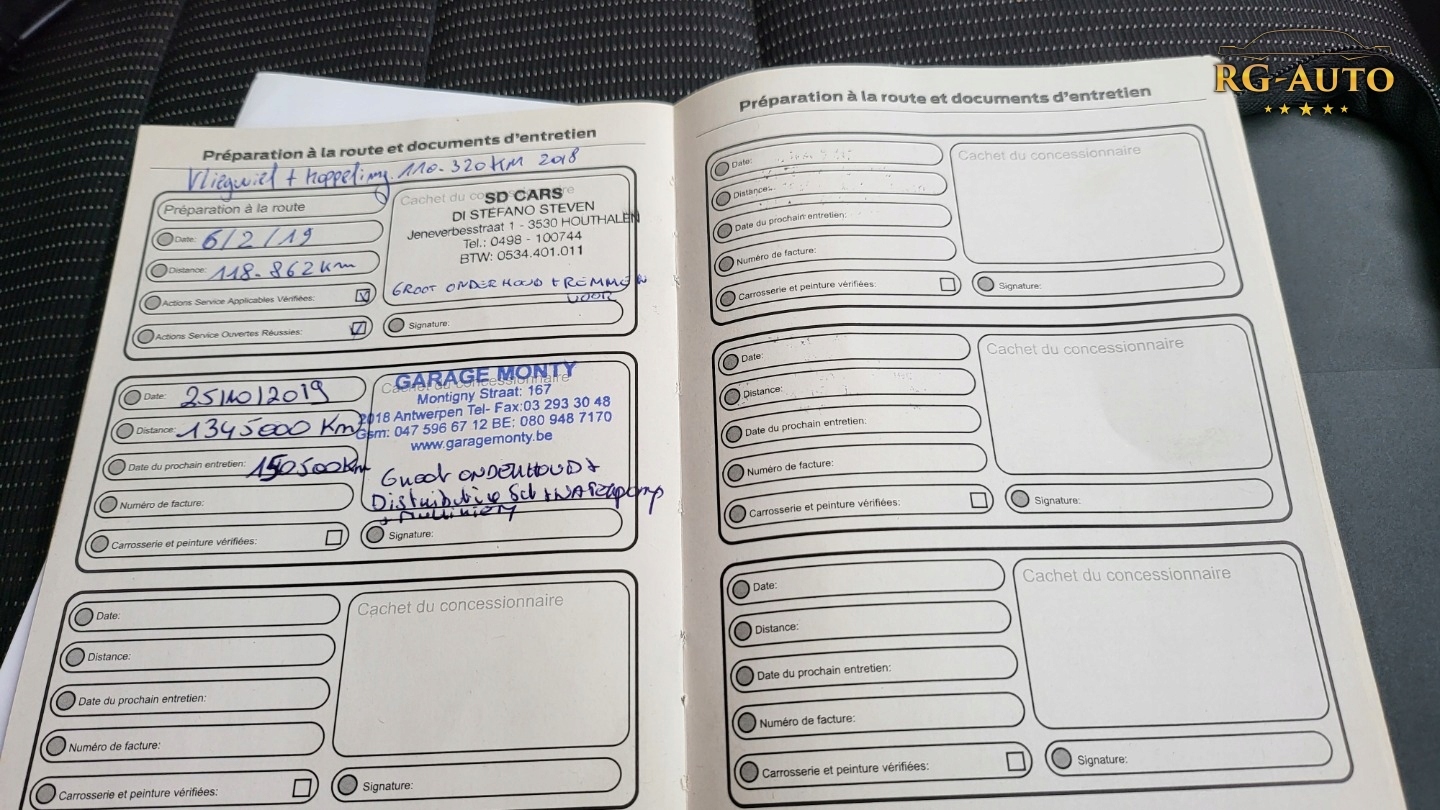 RG-AUTO
Préparation à la route et documents d'entretien
Vliegwiel + Koppeling 110.320 KM 2018
Préparation à la route
Date: 6/2/19
Distance: 118.862 km
Actions Service Applicables Vérifiées:
Actions Service Ouvertes Réussies:
Cachet du concessionnaire
SD CARS
DI STEFANO STEVEN
Jeneverbesstraat 1 - 3530 HOUTHALEN
Tel.: 0498 - 100744
BTW: 0534.401.011
GROOT ONDERHOUD + REMMEN
VOOR
Signature:
Date: 25/10/2019
Distance: 1345000 Km
Date du prochain entretien: 150500Km
Numéro de facture:
Carrosserie et peinture vérifiées:
Cachet du concessionnaire
GARAGE MONTY
Montigny Straat: 167
2018 Antwerpen Tel- Fax:03 293 30 48
Gsm: 047 596 67 12 BE: 080 948 7170
www.garagemonty.be
Groot ONDERHOUD +
Distributie Set + WATERpomp
Signature:
Date:
Distance:
Date du prochain entretien:
Numéro de facture:
Carrosserie et peinture vérifiées:
Cachet du concessionnaire
Signature:
Préparation à la route et documents d'entretien
Date:
Distance:
Date du prochain entretien:
Numéro de facture:
Carrosserie et peinture vérifiées:
Cachet du concessionnaire
Signature:
Date:
Distance:
Date du prochain entretien:
Numéro de facture:
Carrosserie et peinture vérifiées:
Cachet du concessionnaire
Signature:
Date:
Distance:
Date du prochain entretien:
Numéro de facture:
Carrosserie et peinture vérifiées:
Cachet du concessionnaire
Signature: